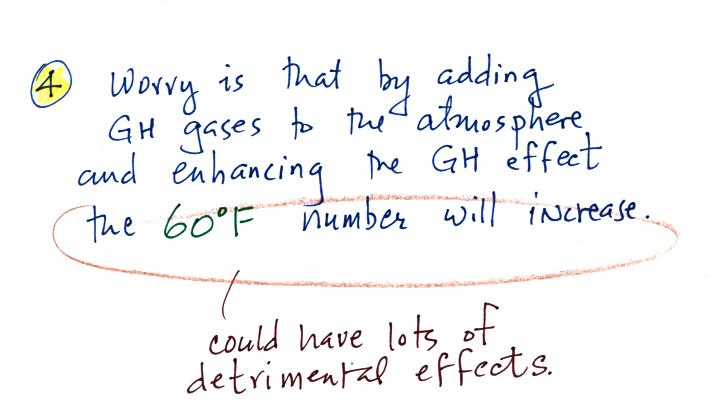 4 Worry is that by adding
GH gases to the atmosphere
and enhancing the GH effect
the 60°F number will increase.
could have lots of
detrimental effects.